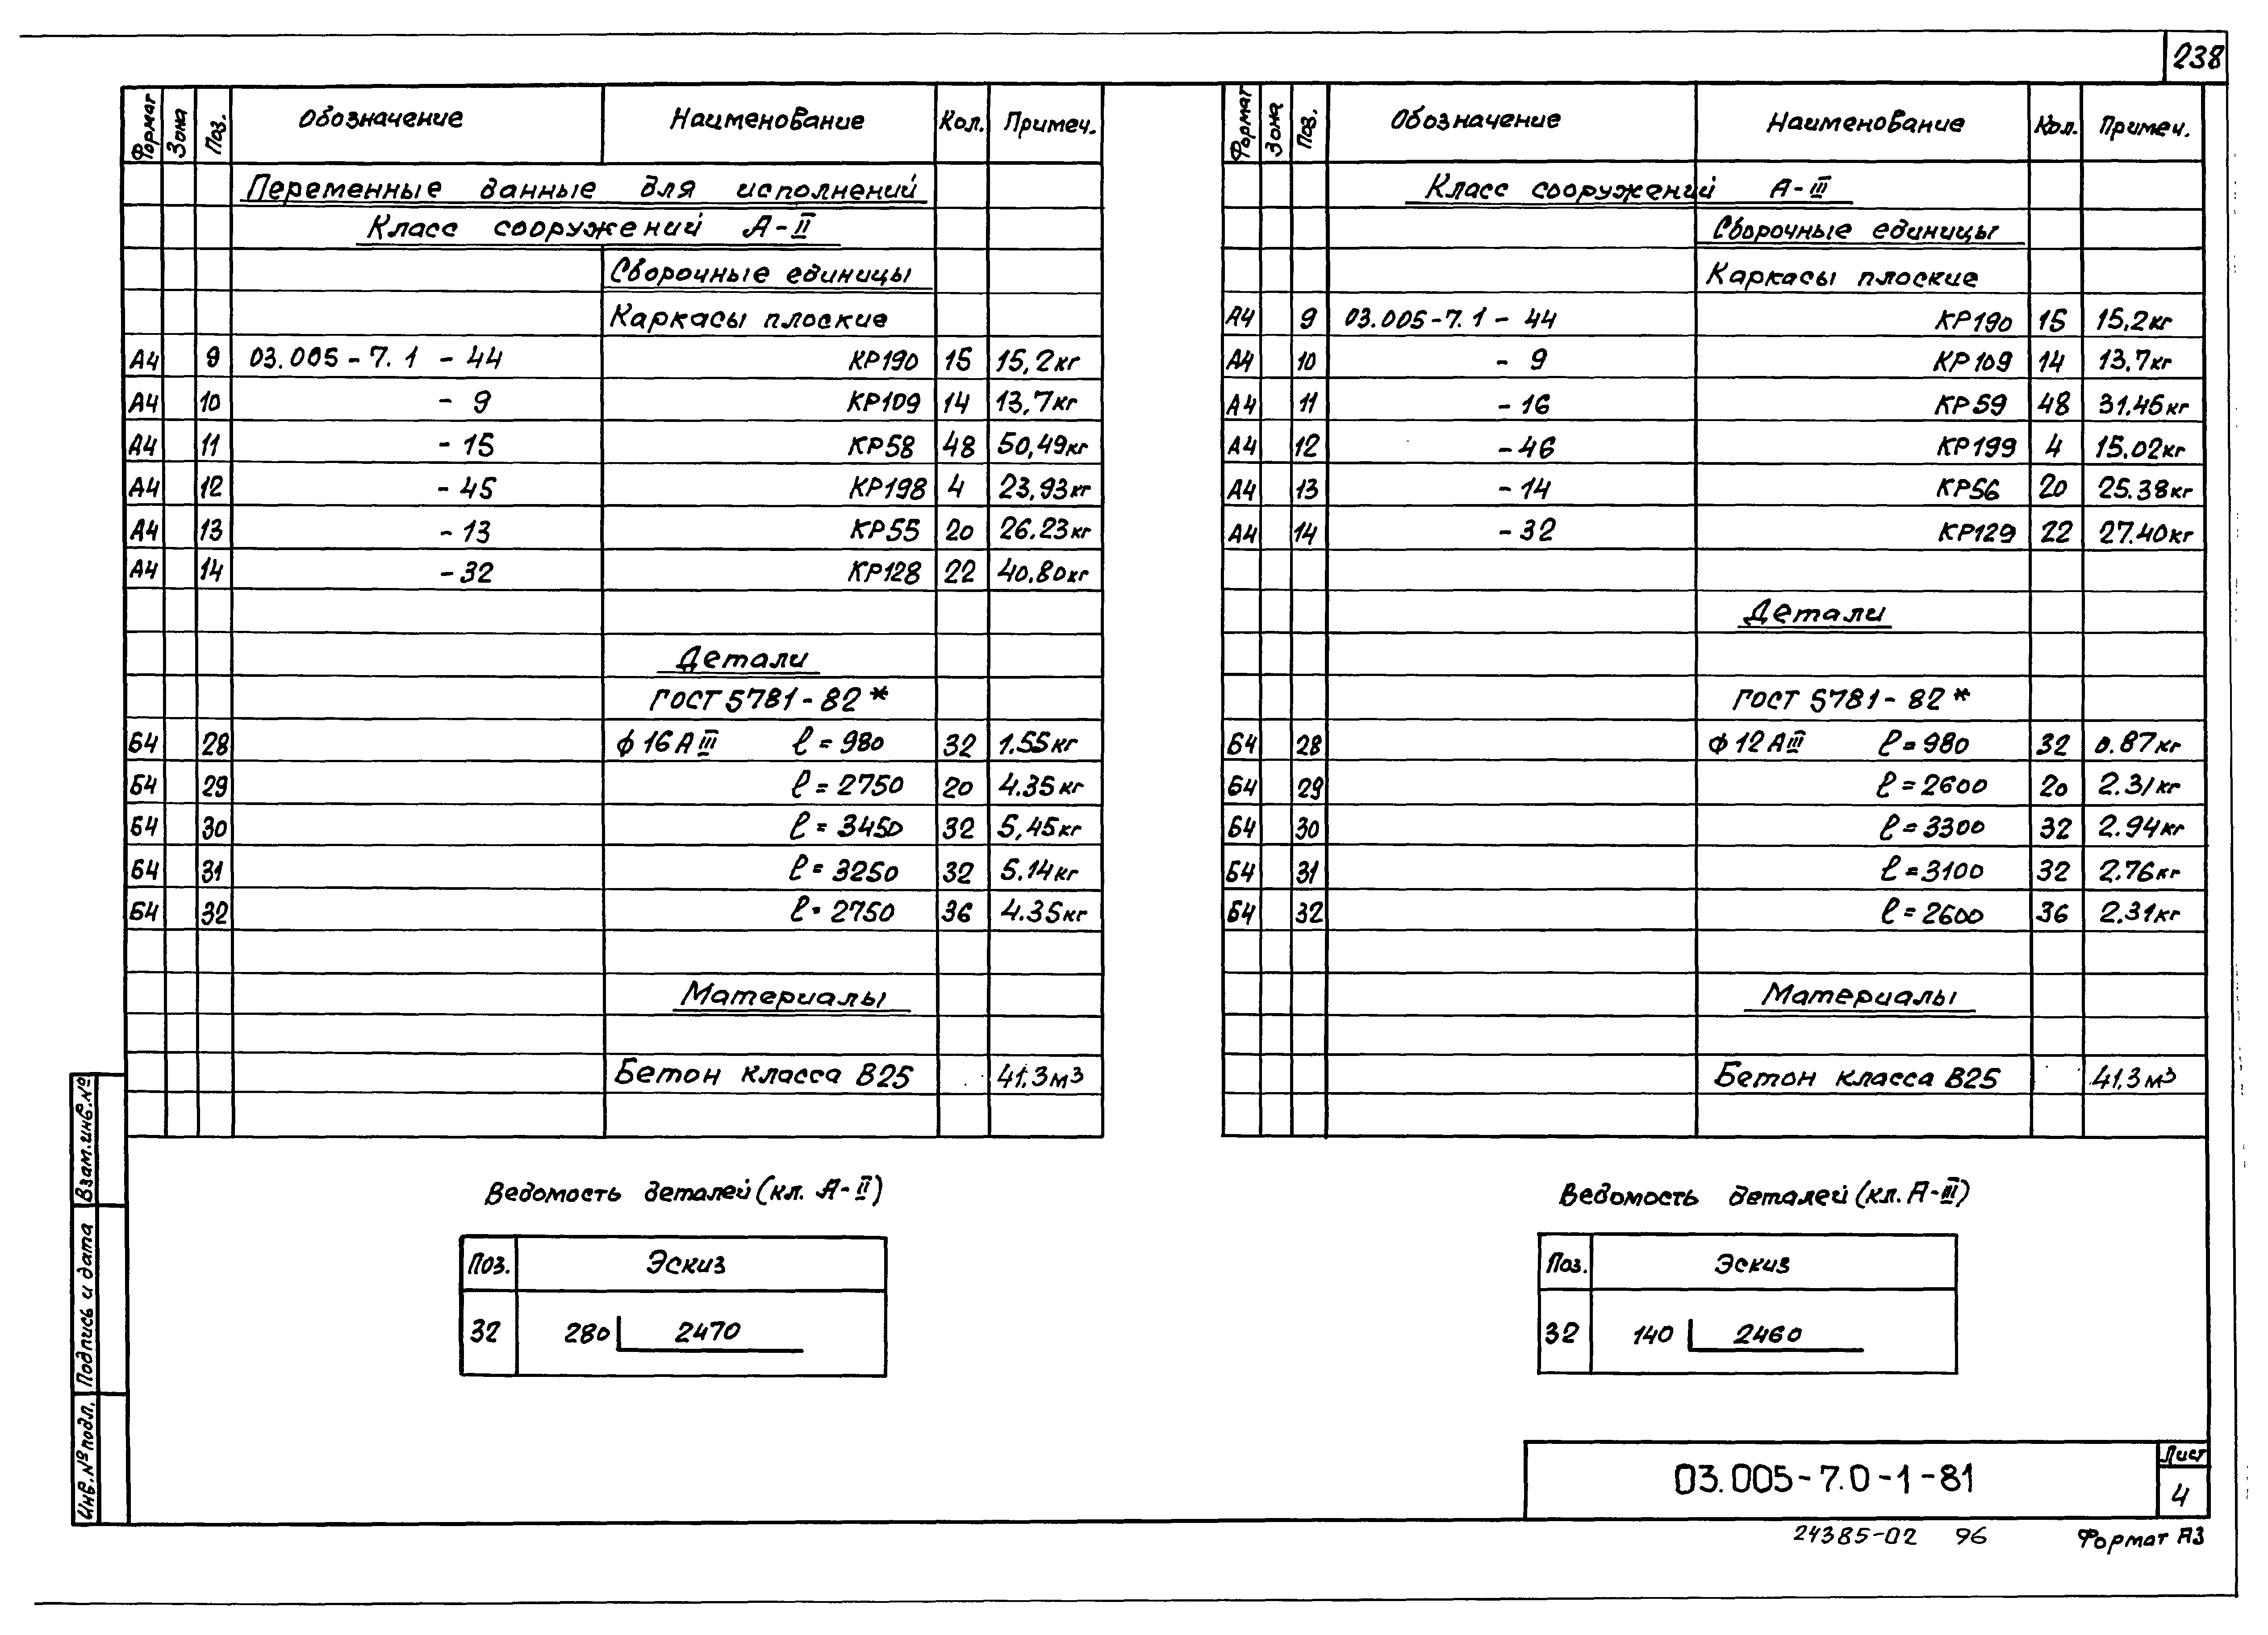 238
Формат Зона Поз. Обозначение Наименование Кол. Примеч.
Переменные данные для исполнений
Класс сооружений А-II
Сборочные единицы
Каркасы плоские
А4 9 03.005-7.1 - 44 КР190 15 15,2кг
А4 10 - 9 КР109 14 13,7кг
А4 11 - 15 КР58 48 50,49кг
А4 12 - 45 КР198 4 23,93кг
А4 13 - 13 КР55 20 26.23кг
А4 14 - 32 КР128 22 40.80кг
Детали
ГОСТ 5781-82*
Б4 28 ϕ16АIII ℓ=980 32 1.55кг
Б4 29 ℓ=2750 20 4.35кг
Б4 30 ℓ=3450 32 5,45кг
Б4 31 ℓ=3250 32 5.14кг
Б4 32 ℓ=2750 36 4.35кг
Материалы
Бетон класса В25 41.3м³
Ведомость деталей (кл. А-II)
Поз. Эскиз
32 280 2470
Формат Зона Поз. Обозначение Наименование Кол. Примеч.
Класс сооружений А-III
Сборочные единицы
Каркасы плоские
А4 9 03.005-7.1 - 44 КР190 15 15.2кг
А4 10 - 9 КР109 14 13.7кг
А4 11 - 16 КР59 48 31.45кг
А4 12 - 46 КР199 4 15.02кг
А4 13 - 14 КР56 20 25.38кг
А4 14 - 32 КР129 22 27.40кг
Детали
ГОСТ 5781-82*
Б4 28 ϕ12АIII ℓ=980 32 0.87кг
Б4 29 ℓ=2600 20 2.31кг
Б4 30 ℓ=3300 32 2.94кг
Б4 31 ℓ=3100 32 2.76кг
Б4 32 ℓ=2600 36 2.31кг
Материалы
Бетон класса В25 41,3м³
Ведомость деталей (кл. А-III)
Поз. Эскиз
32 140 2460
Взам.инв.№
Подпись и дата
Инв.№ подл.
03.005-7.0-1-81
Лист
4
24385-02 96 Формат А3